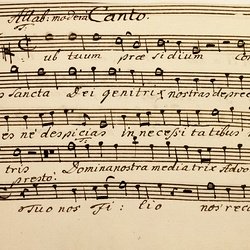 Allab: modem Canto.
ub tuum præ sidium con
s Sancta Dei genitrix nostras depreca
es ne despicias in necessitatibus
tris Domina nostra mediatrix Advo
presto.
Tuo nos Fi: lio nos reco